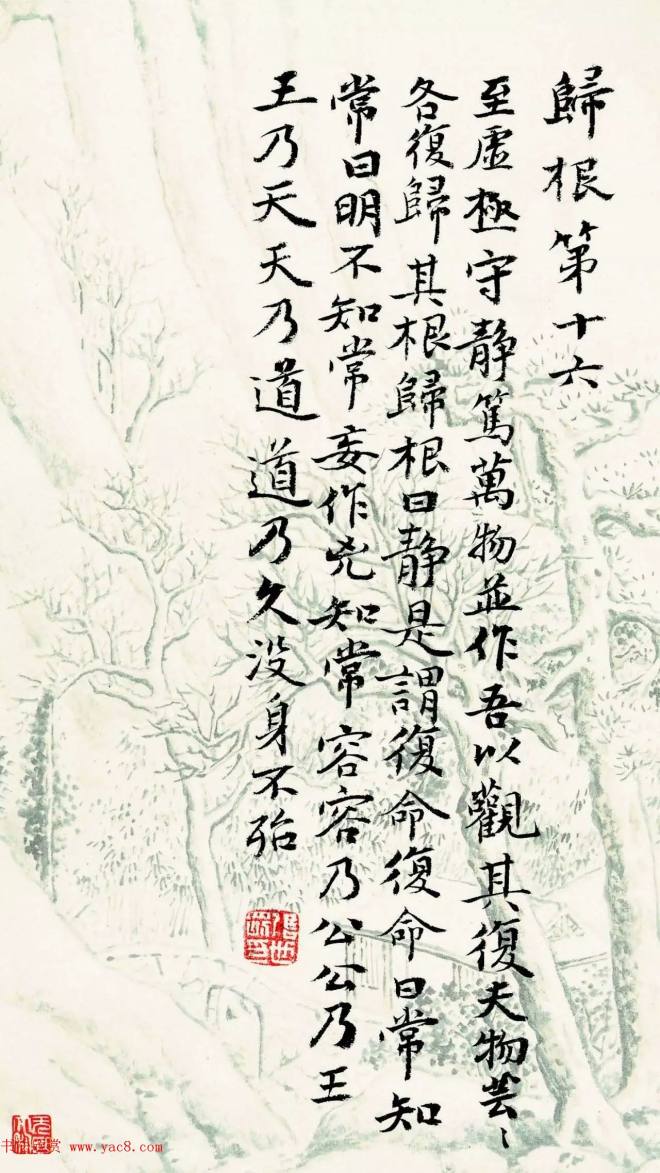 歸根第十六
至虛極守靜篤萬物並作吾以觀其復夫物芸〻
各復歸其根歸根曰靜是謂復命復命曰常知
常曰明不知常妄作凶知常容容乃公公乃王
王乃天天乃道道乃久沒身不殆
www.yac8.com